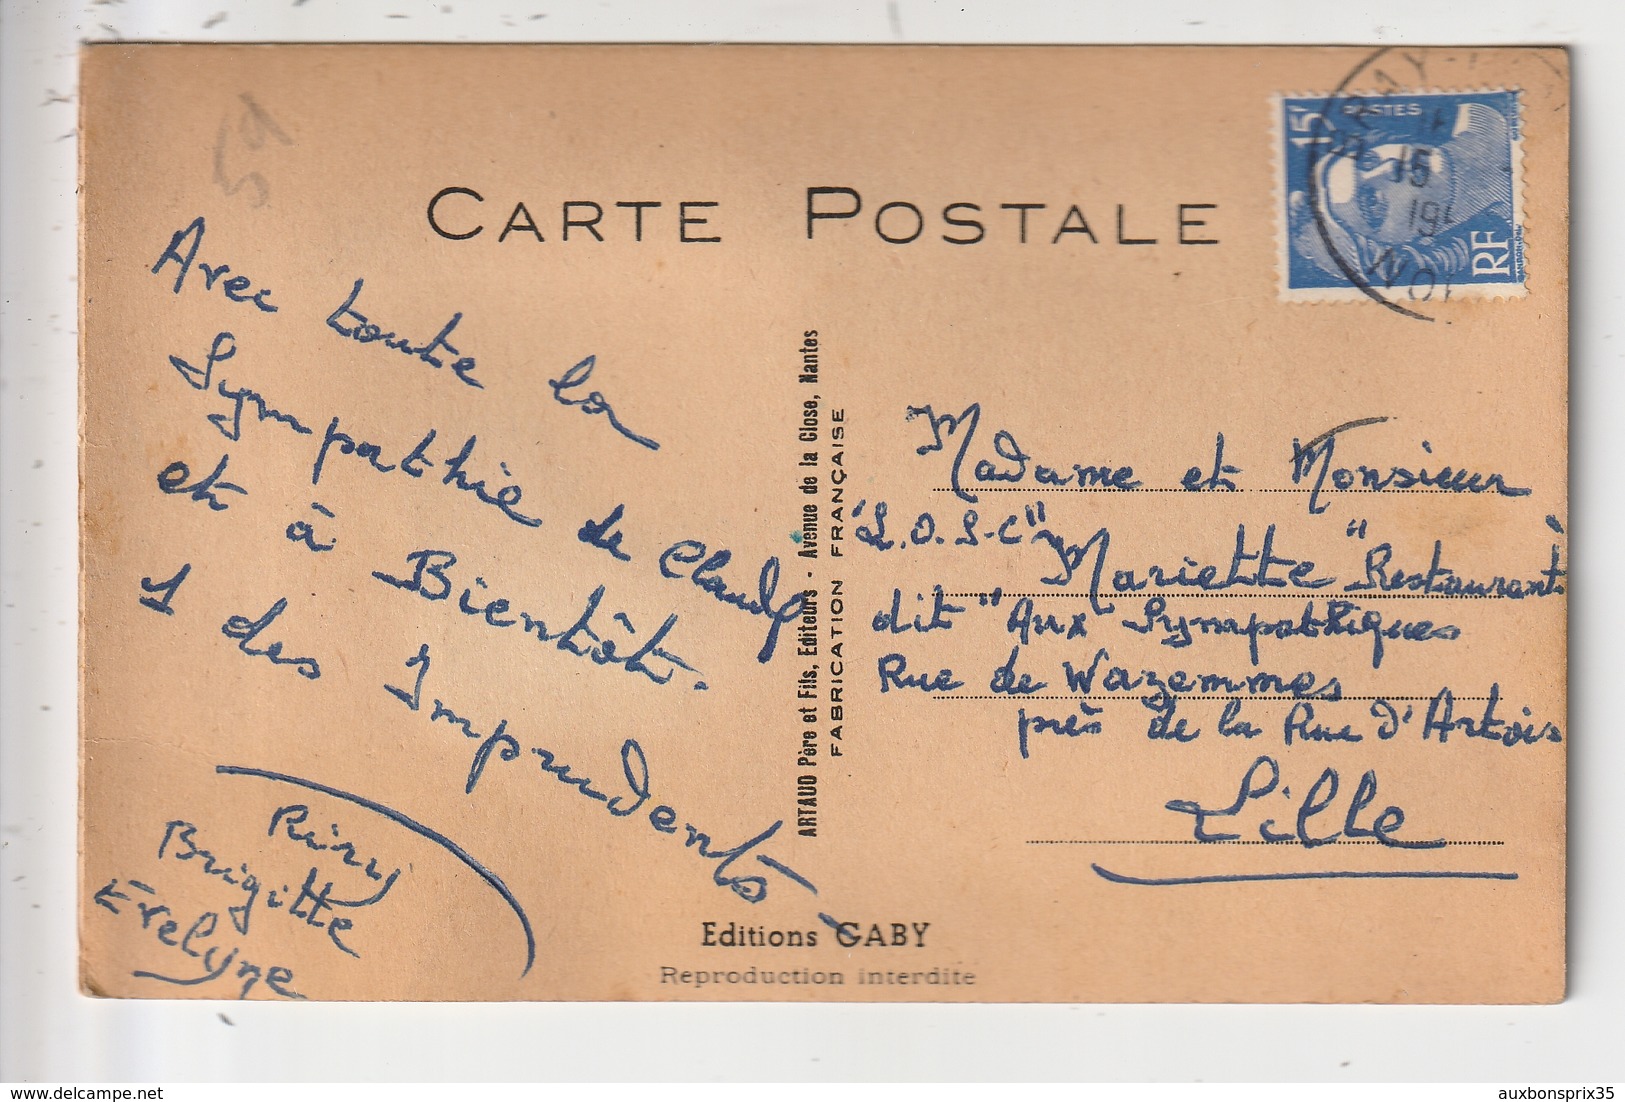 59
CARTE POSTALE
15F
POSTES
RF
15
Avec toute la
Sympathie de Claude
et à Bientôt.
1 des Imprudents
Brigitte
Evelyne
ARTAUD Père et Fils, Editeurs - Avenue de la Close, Nantes
FABRICATION FRANÇAISE
Madame et Monsieur
"L.O.S-C" Mariette "Restaurant
dit "Aux Sympathiques
Rue de Wazemmes
près de la Rue d'Artois
Lille
Editions GABY
Reproduction interdite
auxbonsprix35